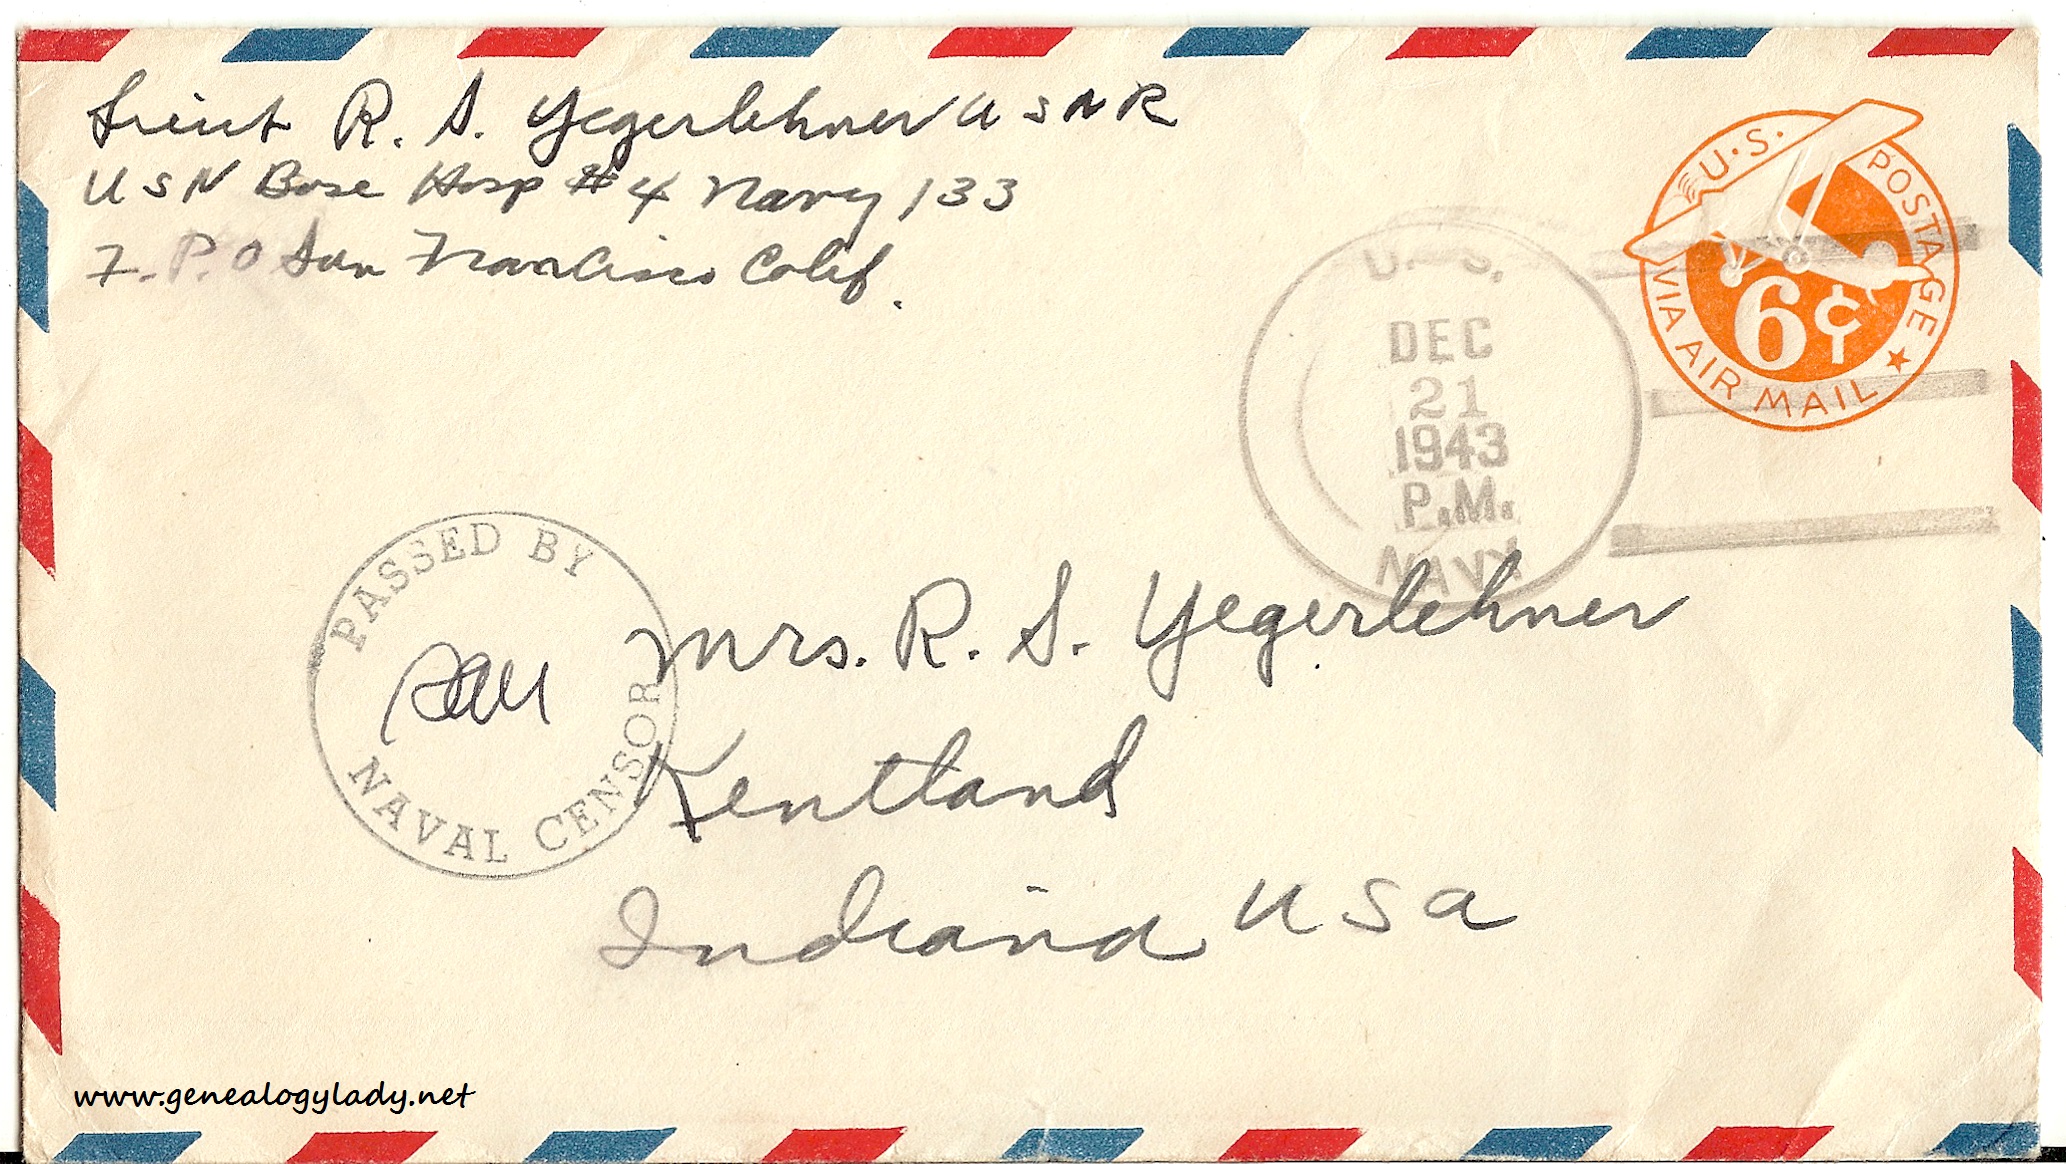 Lieut R. S. Yegerlehner U S N R
U S N Base Hosp #4 Navy 133
F. P. O San Francisco Calif.
U. S. POSTAGE
6¢
VIA AIR MAIL
U. S.
DEC
21
1943
P.M.
NAVY
PASSED BY
NAVAL CENSOR
Mrs. R. S. Yegerlehner
Kentland
Indiana USA
www.genealogylady.net